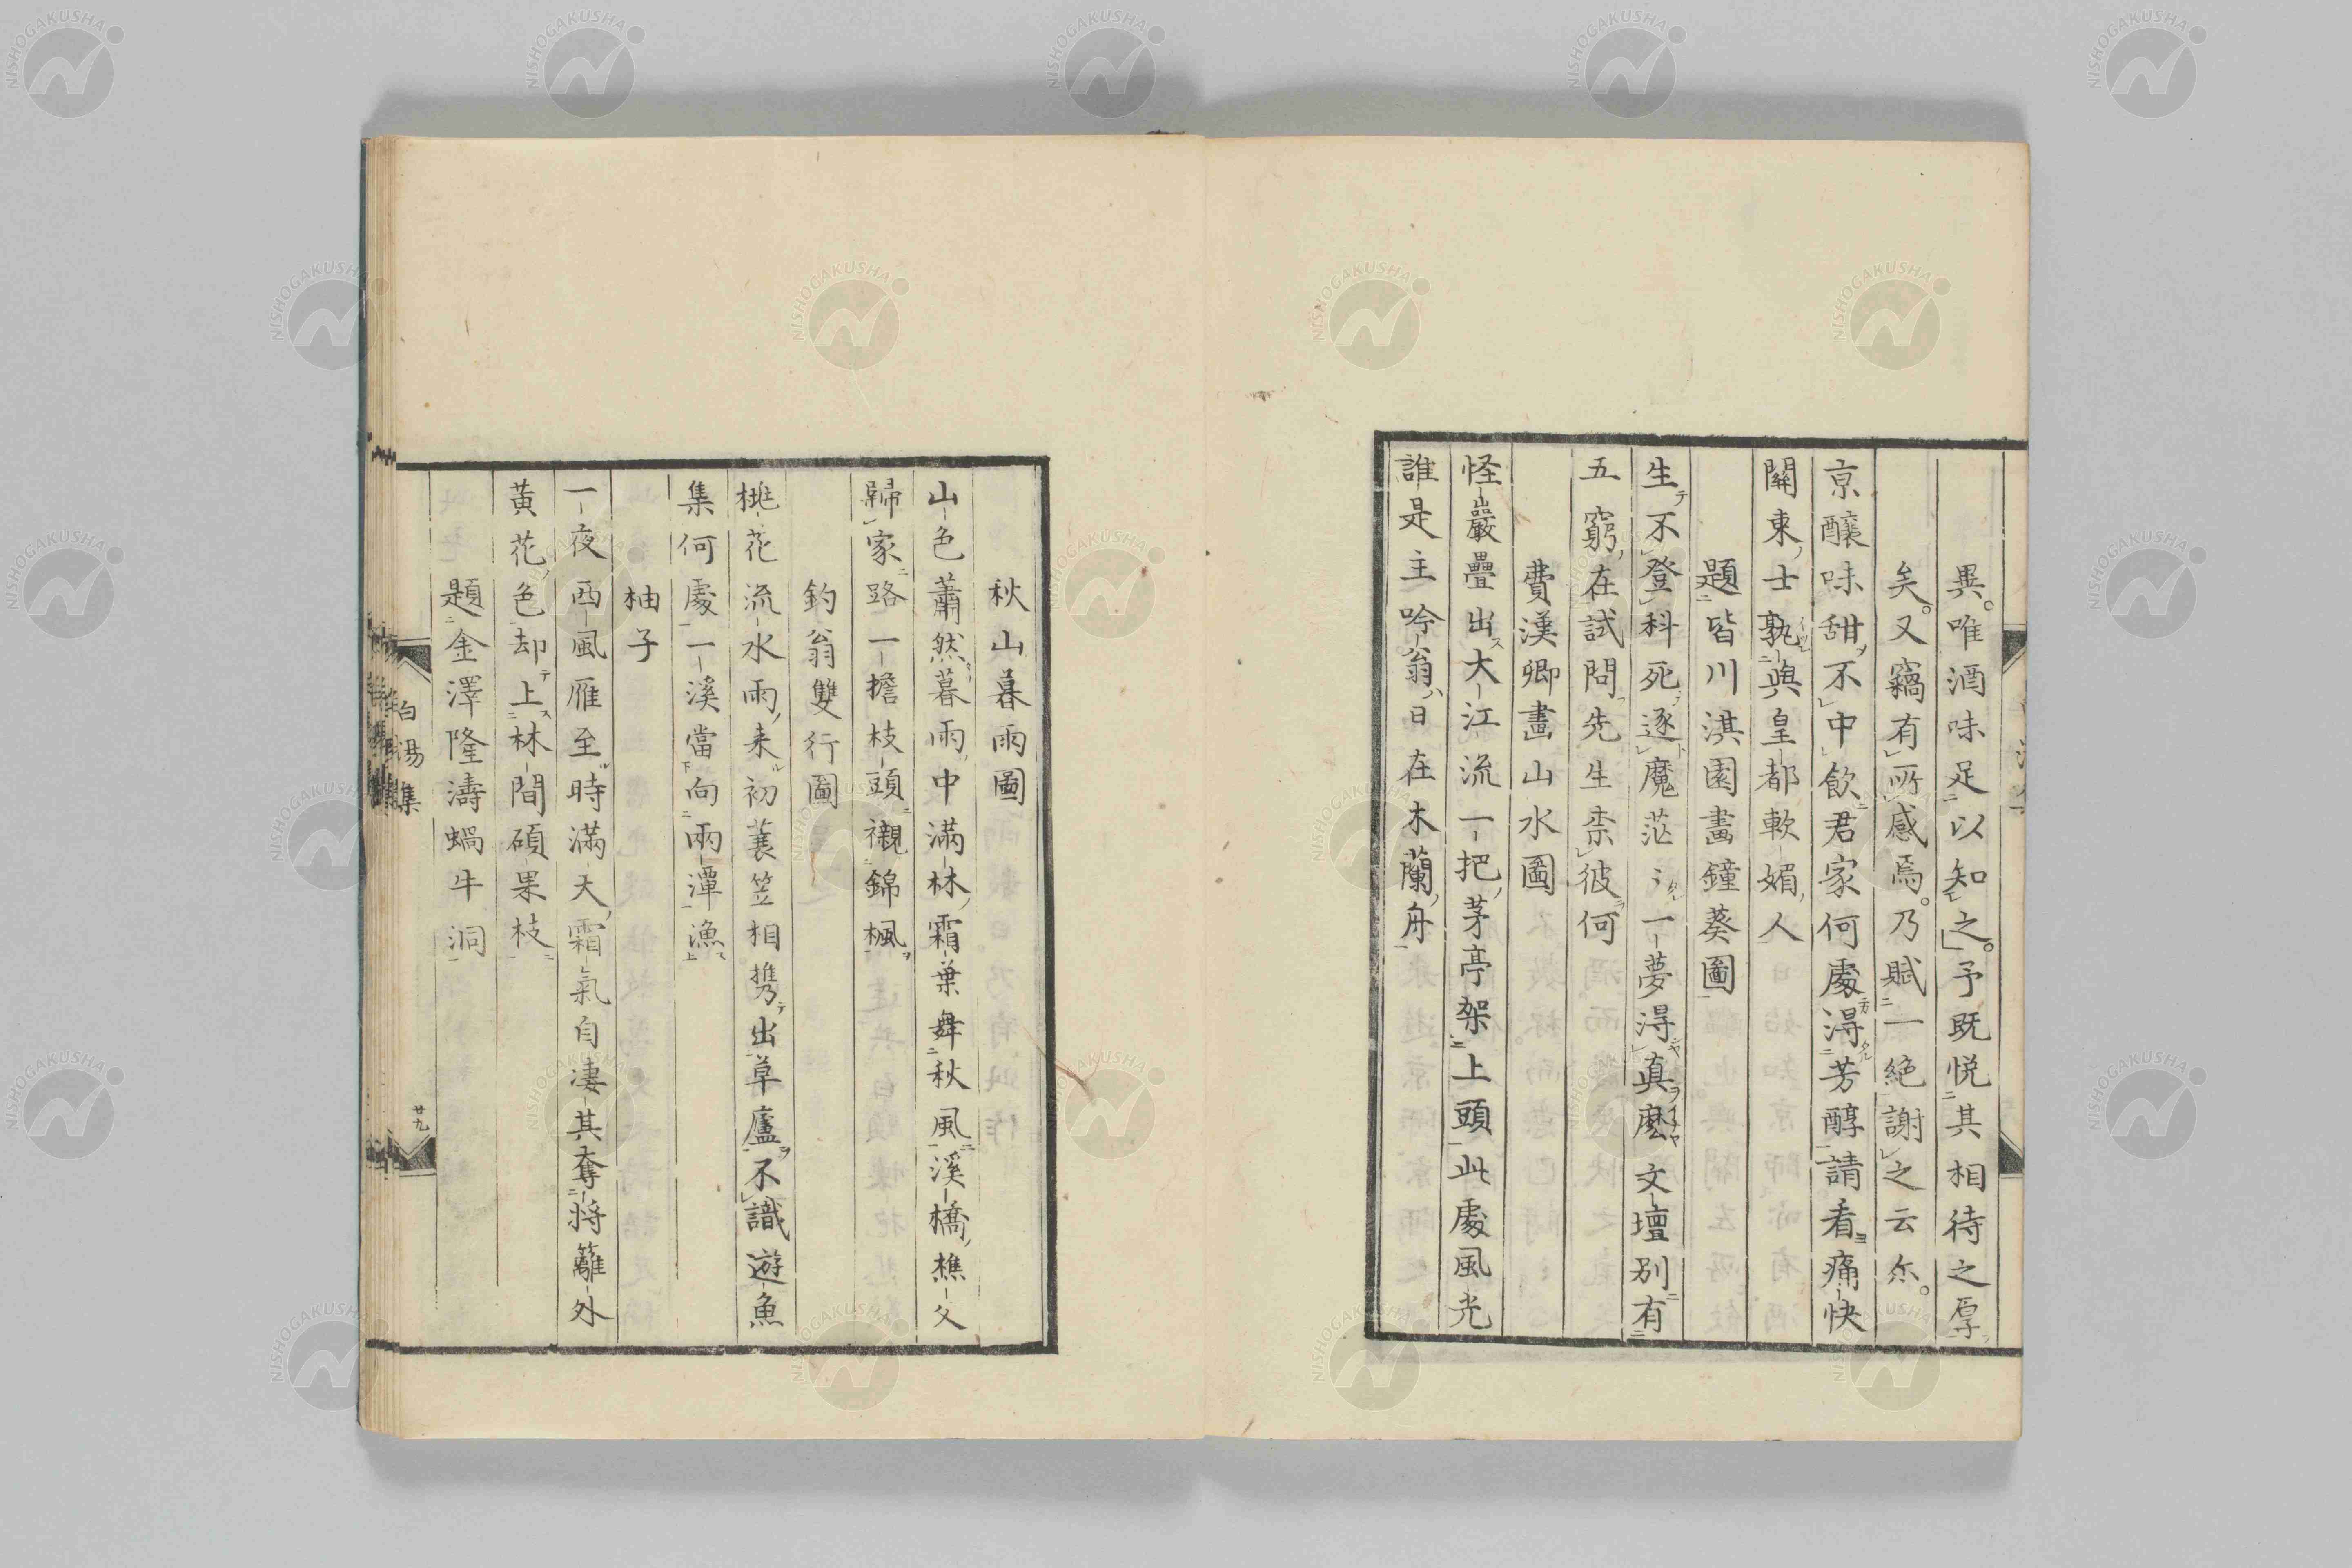 異。唯酒味足以知之。予既悦其相待之厚
矣。又竊有所感焉。乃賦一絶謝之云尓。
京醸味甜不中飲君家何處得芳醇請看痛快
關東士孰與皇都軟媚人
題皆川淇園畫鐘葵圖
生不登科死逐魔茫〻一夢得真麽文壇別有
五窮在試問先生柰彼何
費漢卿畫山水圖
怪巖疊出大江流一把茅亭架上頭此處風光
誰是主吟翁日在木蘭舟
秋山暮雨圖
山色蕭然暮雨中滿林霜葉舞秋風溪橋樵父
歸家路一擔枝頭襯錦楓
釣翁雙行圖
桃花流水雨来初蓑笠相携出草廬不識遊魚
集何處一溪當向兩潭漁
柚子
一夜西風雁至時滿天霜氣自凄其奪将籬外
黃花色却上林間碩果枝
題金澤隆濤蝸牛洞
白湯集
廿九
NISHOGAKUSHA